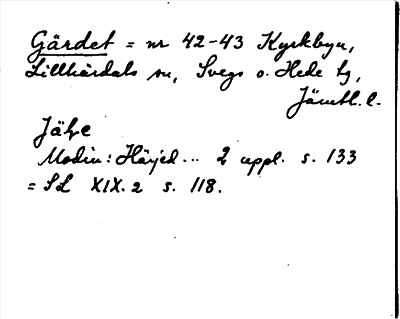 Gärdet = nr 42-43 Kyrkbyn,
Lillhärdals sn, Svegs o. Hede tg,
Jämtl. l.
Jäℓe
Modin: Härjed... 2 uppl. s. 133
= SL XIX. 2 s. 118.